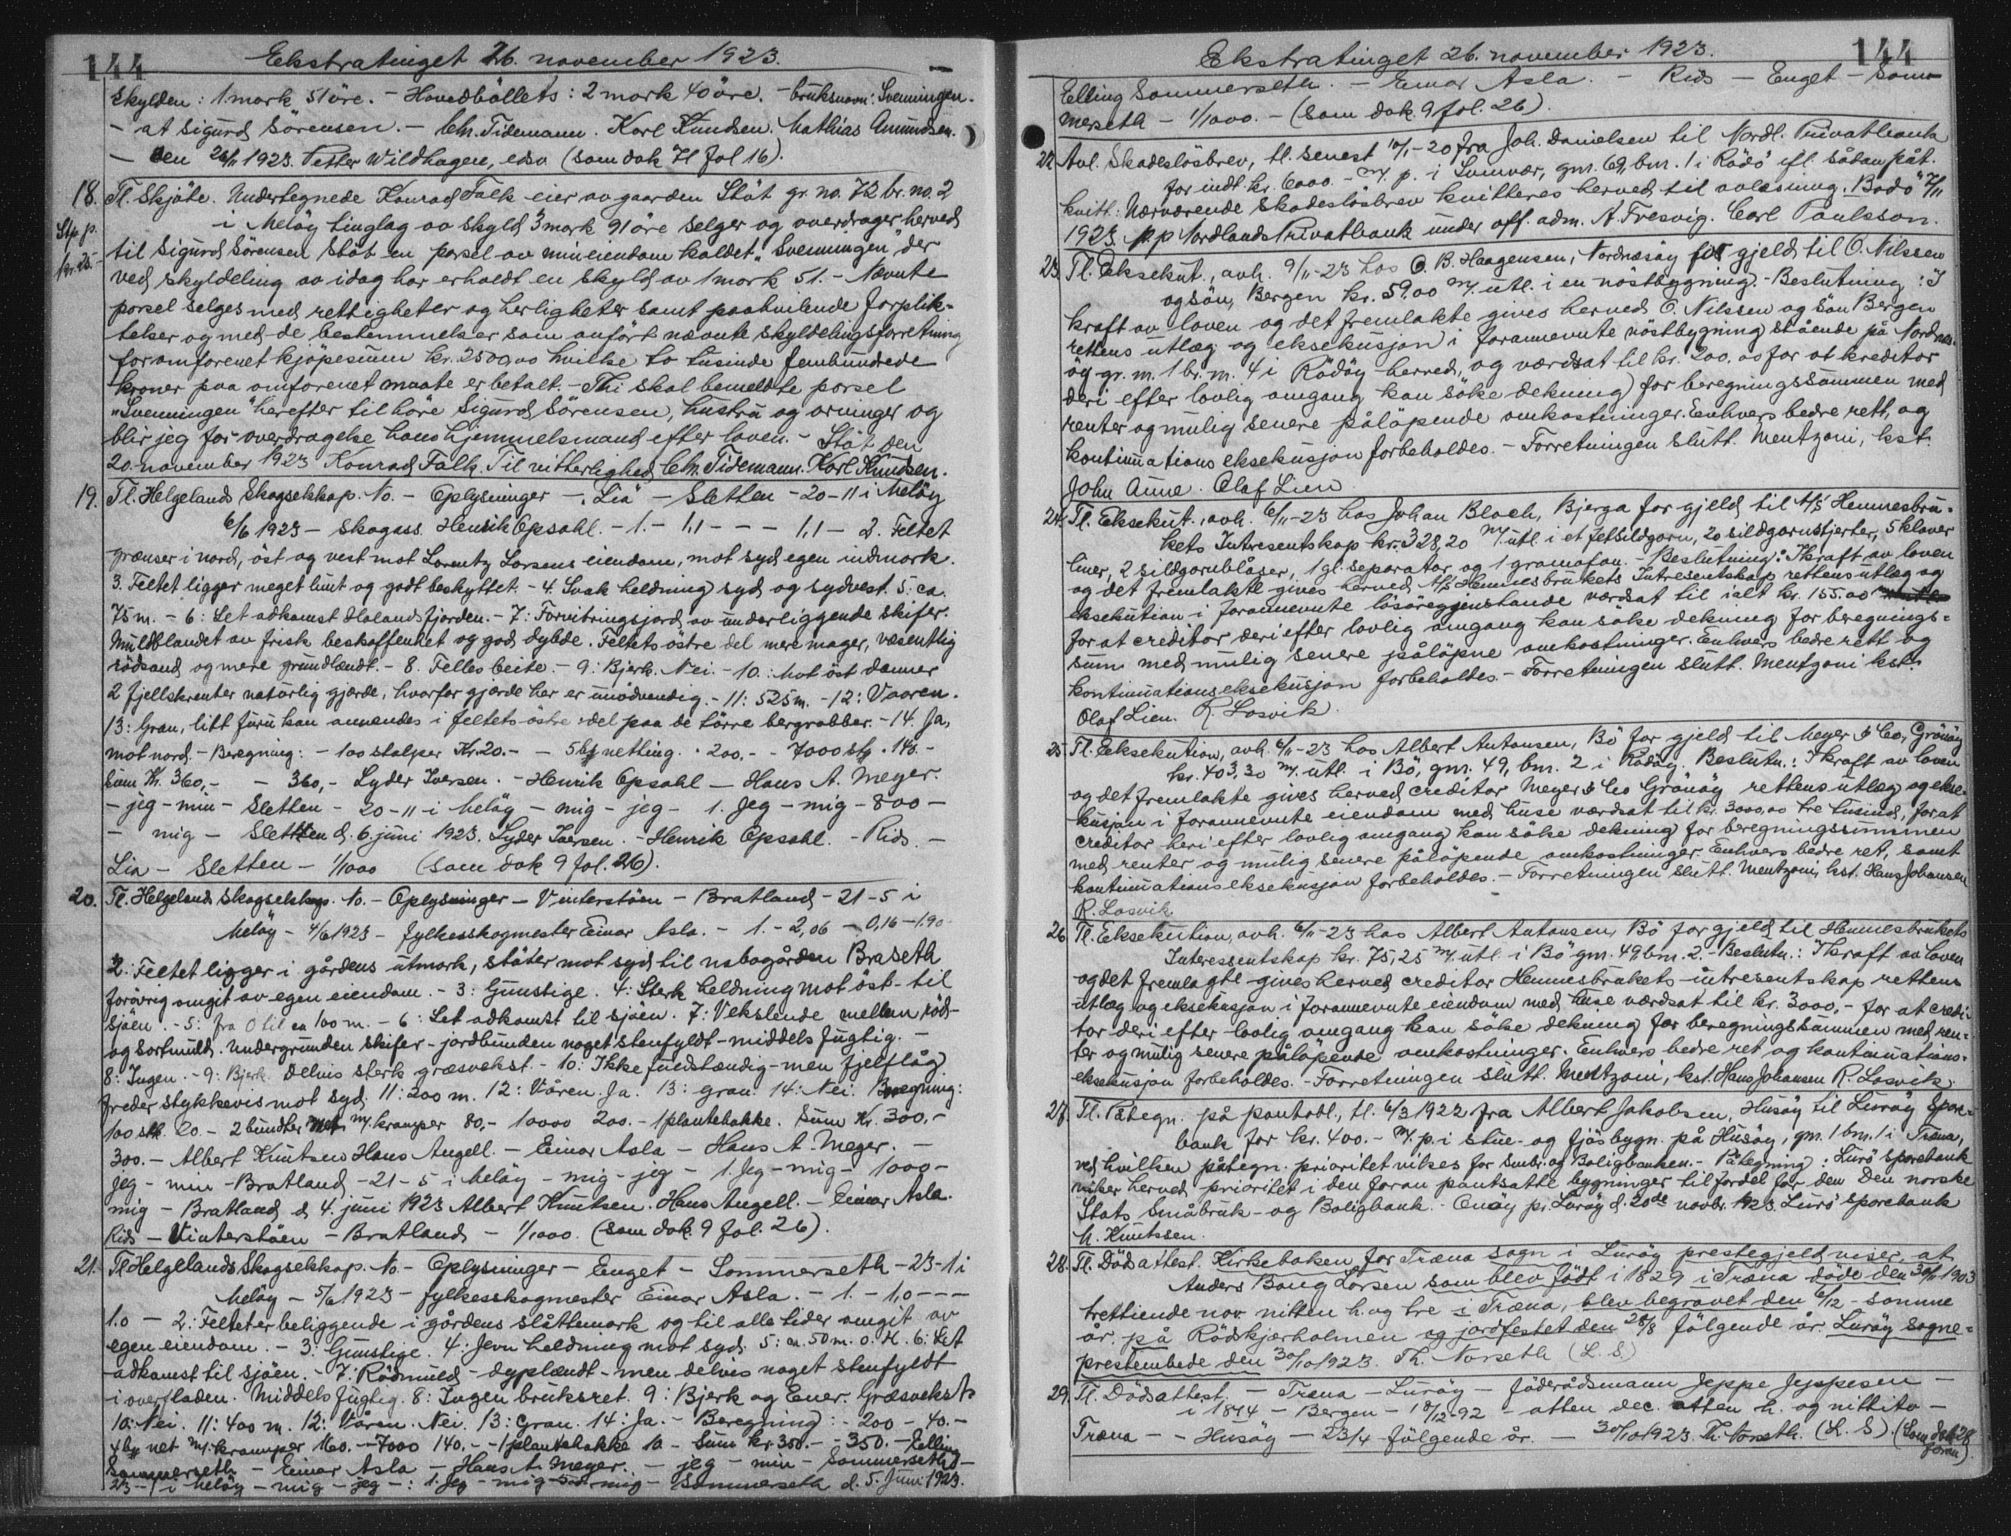 144
Ekstratinget 26. november 1923.
Skylden: 1 mark 51 öre. - Hovedböllets: 2 mark 40 öre. - bruksnavn: Svenningen.
- at Sigurd Sörensen. - Chr. Tidemann. Karl Knudsen. Mathias Amundsen.
- Den 26/11 1923. Petter Wildhagen, edsv (som dok 71 fol 16).
18. Tl. Skjöte. Undertegnede Konrad Falk eier av gaarden Stöt gr. no. 72 br. no. 2
Stp. p. kr. 25.-
i Melöy tinglag av skyld 3 mark 91 öre selger og overdrager herved
til Sigurd Sörensen Stöt en parsel av min eiendom kaldet "Svenningen", der
ved skylddeling av idag har erholdt en skyld av 1 mark 51. - Nævnte
parsel selges med rettigheter og herligheter samt paahvilende forplik-
telser og med de bestemmelser som anfört nævnte skylddelingsforretning
for omforenet kjöpesum kr. 2500,00 hvilke to tusinde femhundrede
kroner paa omforenet maate er betalt. - Thi skal bemeldte parsel
"Svenningen" herefter tilhöre Sigurd Sörensen, hustru og arvinger og
blir jeg for overdragelse hans hjemmelsmand efter loven. - Stöt den
20. november 1923 Konrad Falk. Til vitterlighed Chr. Tidemann. Karl Knudsen.
19. Tl. Helgelands Skogselskap. No. - Oplysninger - "Lia" - Sletten - 20-11 i Melöy
6/6 1923 - skogass. Henrik Opsahl. - 1. - 1,1 - - - 1,1 - 2. Feltet
grænser i nord, öst og vest mot Lorentz Larsens eiendom, mot syd egen indmark.
3. Feltet ligger meget lunt og godt beskyttet. - 4. Svak heldning syd og sydvest. 5: ca.
75 m. - 6: Let adkomst Holandsfjorden. - 7: Forvitringsjord av underliggende skifer.
Muldblandet av frisk beskaffenhet og god dybde. Feltets östre del mere mager, væsentlig
rödsand og mere grundlændt. - 8. Felles beite. - 9: Bjerk. Nei. - 10: Mot öst danner
2 fjellskrenter naturlig gjærde, hvorfor gjærde her er unödvendig. - 11: 525 m. - 12: Vaaren.
13: Gran, litt furu kan anvendes i feltets östre del paa de törre bergrabber. - 14. Ja,
mot nord. - Beregning: - 100 stolper Kr. 20.- - 5 bt netting. 200.- - 7000 stk. 140.-
Sum Kr. 360,- - 360,- Lyder Iversen. - Henrik Opsahl - Hans A. Meyer.
- jeg - min - Sletten - 20-11 - i Melöy - mig - jeg - 1. Jeg - mig - 800 -
- mig - Sletten d. 6. juni 1923. Lyder Iversen. - Henrik Opsahl. - Rids. -
Lia - Sletten - 1/1000 (som dok 9 fol. 26).
20. Tl. Helgelands Skogselskap. No. - Oplysninger - Vinterstöen - Bratland - 21-5 i
Melöy - 4/6 1923 - fylkesskogmester Einar Asla. - 1. - 2,06 - 0,16 - 1,90
2: Feltet ligger i gårdens utmark, stöter mot syd til nabogården Braseth
forövrig omgit av egen eiendom. - 3: Gunstige. 4: Sterk heldning mot öst - til
sjöen. - 5: fra 0 til ca 100 m. - 6: Let adkomst til sjöen. 7: Vekslende mellem röd-
og sortmuld. Undergrunden skifer - jordbunden noget stenfyldt - middels fugtig. -
8: Ingen. - 9: Bjerk. Delvis sterk græsvekst. - 10: Ikke fuldstændig - men fjelflåg
freder stykkevis mot syd. 11: 200 m. 12: Våren. Ja. 13: gran. 14: Nei. Beregning:
100 stk. 20.- - 2 bundter net m/ kramper 80,- 10000 200.- - 1 plantehakke. Sum Kr. 300,-
300.- Albert Knutsen Hans Angell. - Einar Asla - Hans A. Meyer. -
jeg - min - Bratland - 21-5 - i Melöy - mig - jeg - 1. Jeg - mig - 1000 -
mig - Bratland d. 4. juni 1923 Albert Knutsen. Hans Angell. - Einar Asla.
Rids - Vinterstöen - Bratland - 1/1000 (som dok. 9 fol. 26).
21. Tl. Helgelands Skogselskap. No. - Oplysninger - Enget - Sommerseth - 23-1 i
Melöy - 5/6 1923 - fylkesskogmester Einar Asla. - 1. - 1,0 - - -
1.0 - 2: Feltet er beliggende i gårdens slåttemark og til alle sider omgit av
egen eiendom. - 3: Gunstige. 4: Jevn heldning mot syd. 5: ca. 50 m. o. H. 6: Let
adkomst til sjöen. - 7: Rödmuld - dyplændt - men delvis noget stenfyldt
i overfladen. Middels fugtig. 8: Ingen bruksret. 9: Bjerk og Ener. Græsvekst.
10: Nei. 11: 400 m. 12: Våren. Nei. 13: Gran. 14: Ja. - Beregning: - 200 - 40.-
4 bt net m/ kramper 160.- - 7000 140.- - 1 plantehakke 10 - Sum kr. 350.- - 350.- Elling
Sommerseth - Einar Asla - Hans A. Meyer. - jeg - min - Sommerseth -
23-1 i Melöy - mig - jeg -: 1. Jeg - mig - mig - Sommerseth d. 5. Juni 1923.
144
Ekstratinget 26. november 1923.
Elling Sommerseth. - Einar Asla. - Rids - Enget - Som-
merseth - 1/1000. - (som dok 9 fol. 26).
22. Avl. Skadeslösbrev, tl. senest 10/1-20 fra Joh. Danielsen til Nordl. Privatbank
for indt. kr. 6000.- m/ p. i Svinvær, gnr. 69, bnr. 1 i Rödö efl. sådan påt.
kvitt: Nærværende skadeslösbrev kvitteres herved til avlæsning. Bodö 7/11
1923. pp Nordlands Privatbank under off. adm. A. Tresvig. Carl Paulsson.
23. Tl. Eksekut., avh. 9/11-23 hos O. B. Haagensen, Nordnæsöy for gjeld til O. Nilssen
og sön, Bergen kr. 59.00 m/ utl. i en nöstbygning. - Beslutning: I
kraft av loven og det fremlakte gives herved O. Nilssen og sön Bergen
rettens utlæg og eksekusjon i forannevnte nöstbygning stående på Nordnes-
öy gr. nr. 1 br. nr. 4 i Rödöy herred, og værdsat til kr. 200.00 for at kreditor
deri efter lovlig omgang kan söke dekning for beregningssummen med
renter og mulig senere påløpende omkostninger. Enhvers bedre rett og
kontinuationseksekusjon forbeholdes. - Forretningen slutt. Mentzoni, kst.
John Anne. Olaf Lien
24. Tl. Eksekut., avh. 6/11-23 hos Johan Bloch, Bjerga for gjeld til A/S Hemnesbru-
kets Intresentskap kr. 328,20 m/ utl. i et fetsildgarn, 2 sildgarnstjerter, 5 klaver
liner, 2 sildgarnblåser, 1 gl. separator og 1 gramofon. Beslutning: I kraft av loven
og det fremlakte gives herved A/S Hemnesbrukets Intresentskap rettens utlæg og
eksekution i forannevnte lösöregjenstande værdsat til ialt kr. 155.00
for at creditor deri efter lovlig omgang kan söke dekning for beregnings-
sum med mulig senere påløpne omkostninger. Enhvers bedre rett og
kontinuationseksekusjon forbeholdes. - Forretningen slutt. Mentzoni kst.
Olaf Lien. R. Losvik.
25. Tl. Eksekution, avh. 6/11-23 hos Albert Antonsen, Bö for gjeld til Meyer & Co, Grönöy
kr. 403,30 m/ utl. i Bö, gnr. 49, bnr. 2 i Rödöy. Beslutn.: I kraft av loven
og det fremlakte gives herved creditor Meyer & Co Grönöy rettens utlæg og ekse-
kusjon i forannevnte eiendom med huse værdsat til kr. 3000,00 tre tusind, for at
creditor heri efter lovlig omgang kan söke dekning for beregningssummen
med renter og mulig senere påløpende omkostninger. Enhvers bedre ret, samt
kontinuationseksekusjon forbeholdes. - Forretningen slutt. Mentzoni, kst. Hans Johansen
R. Losvik
26. Tl. Eksekution, avh. 6/11-23 hos Albert Antonsen, Bö for gjeld til Hemnesbrukets
Interessentskap kr. 75,25 m/ utl. i Bö gnr. 49, bnr. 2. - Beslutn.: I kraft av loven
og det fremlagte gives herved creditor Hemnesbrukets intresentskap rettens
utlæg og eksekusjon i forannevnte eiendom med huse værdsat til kr. 3000,- for at credi-
tor deri efter lovlig omgang kan söke dekning for beregningssummen med ren-
ter og mulig senere påløpende omkostninger. Enhvers bedre ret og kontinuations-
eksekusjon forbeholdes. - Forretningen slutt. Mentzoni, kst. Hans Johansen R. Losvik.
27. Tl. Påtegn. på pantobl., tl. 6/3 1922 fra Albert Jakobsen, Husöy til Luröy Spare-
bank for kr. 400.- m/ p. i stue- og fjösbygn. på Husöy, gnr. 1 bnr. 1 i Træna,
ved hvilken påtegn. prioritet vikes for Småbr. og Boligbanken. - Påtegning: Lurö Sparebank
viker herved prioritet i den foran pantsatte bygninger til fordel for den Den norske
Stats Småbruk- og Boligbank. Onöy pr. Luröy d. 20de novbr. 1923. Lurö Sparebank
H. Knutssen.
28. Tl. Dödsattest. Kirkeboken for Træna sogn i Luröy prestegjeld viser, at
Anders Bang Larsen som blev födt i 1829 i Træna döde den 30/11 1903
trettiende nov. nitten h. og tre i Træna, blev begravet den 6/12 samme
år på Rödskjærholmen og jordfestet den 28/3 fölgende år. Luröy sogne-
prestembede den 30/10 1923. Th. Norseth (L. S.)
29. Tl. Dödsattest. - Træna - Luröy - föderådsmann Jeppe Jeppesen -
i 1844 - Bergen - 18/12-92 - atten dec. atten h. og nittito -
Træna - - Husöy - 23/4 fölgende år. - 30/10 1923. Th. Norseth. (L. S). (Som dok 28
foran).